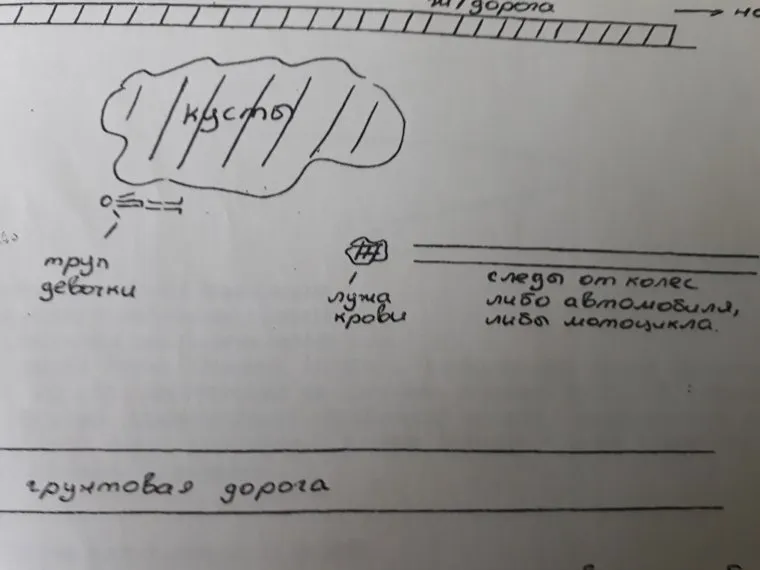 ж/дорога
кусты
труп
девочки
лужа
крови
следы от колес
либо автомобиля,
либы мотоцикла.
грунтовая дорога